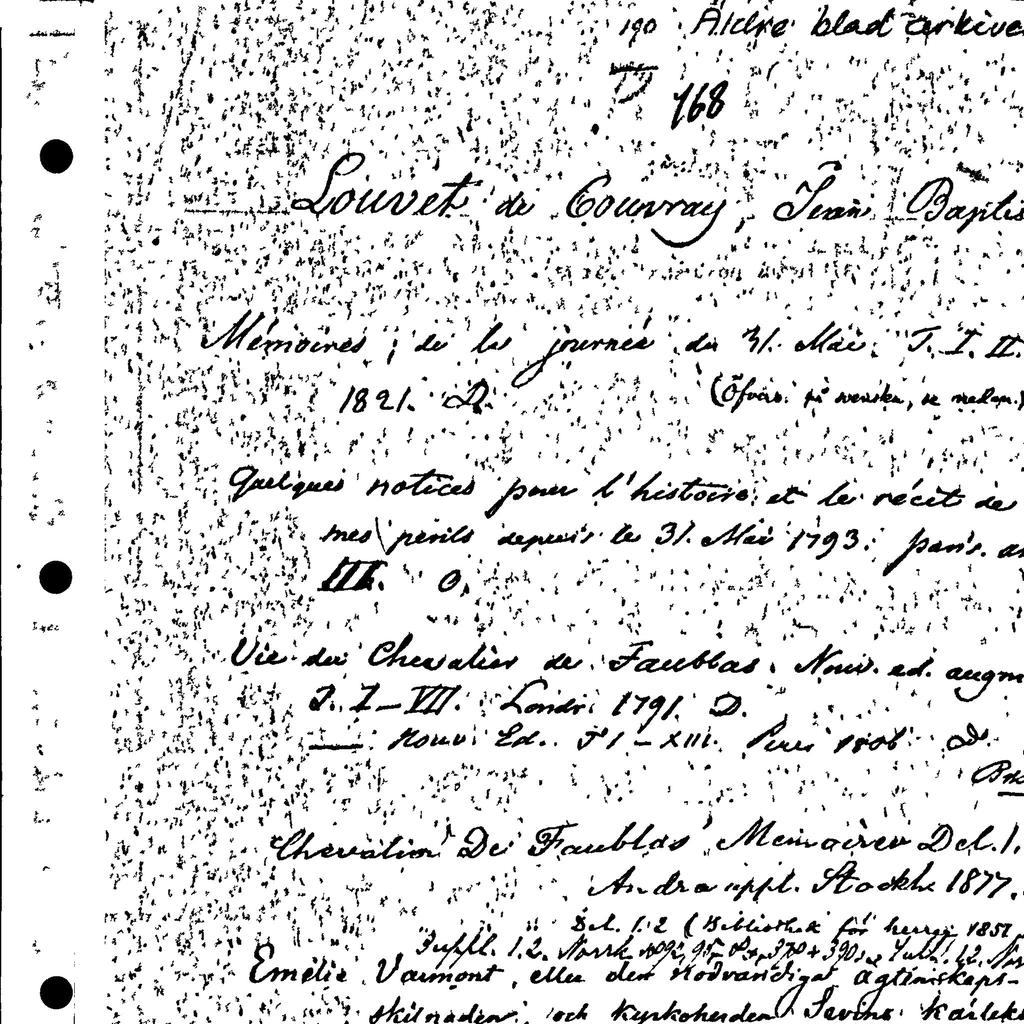 190 Äldre blad arkive
168
Louvet de Couvray, Jean Baptis
Mémoires, de la journée du 31. Mai. T. I. II.
1821. D. (Öfvers. på svenska, se nedan.)
Quelques notices pour l'histoire et le récit de
mes périls depuis le 31. Mai 1793. Paris. an
III. O.
Vie du Chevalier de Faublas. Nouv. ed. augm
T. I–VII. Londr. 1791. D.
—— Nouv. Ed. T I – XIII. Paris 1806 D.
Chevalier De Faublas' Memoirer Del. 1.
Andra uppl. Stockh. 1877.
Del. 1.2 (Bibliothek för herrar
Suppl. 1.2. Norrk.
Emélie Varmont, eller den nödvändiga ägtenskaps-
skilnaden, och kyrkoherden Sevins kärleks